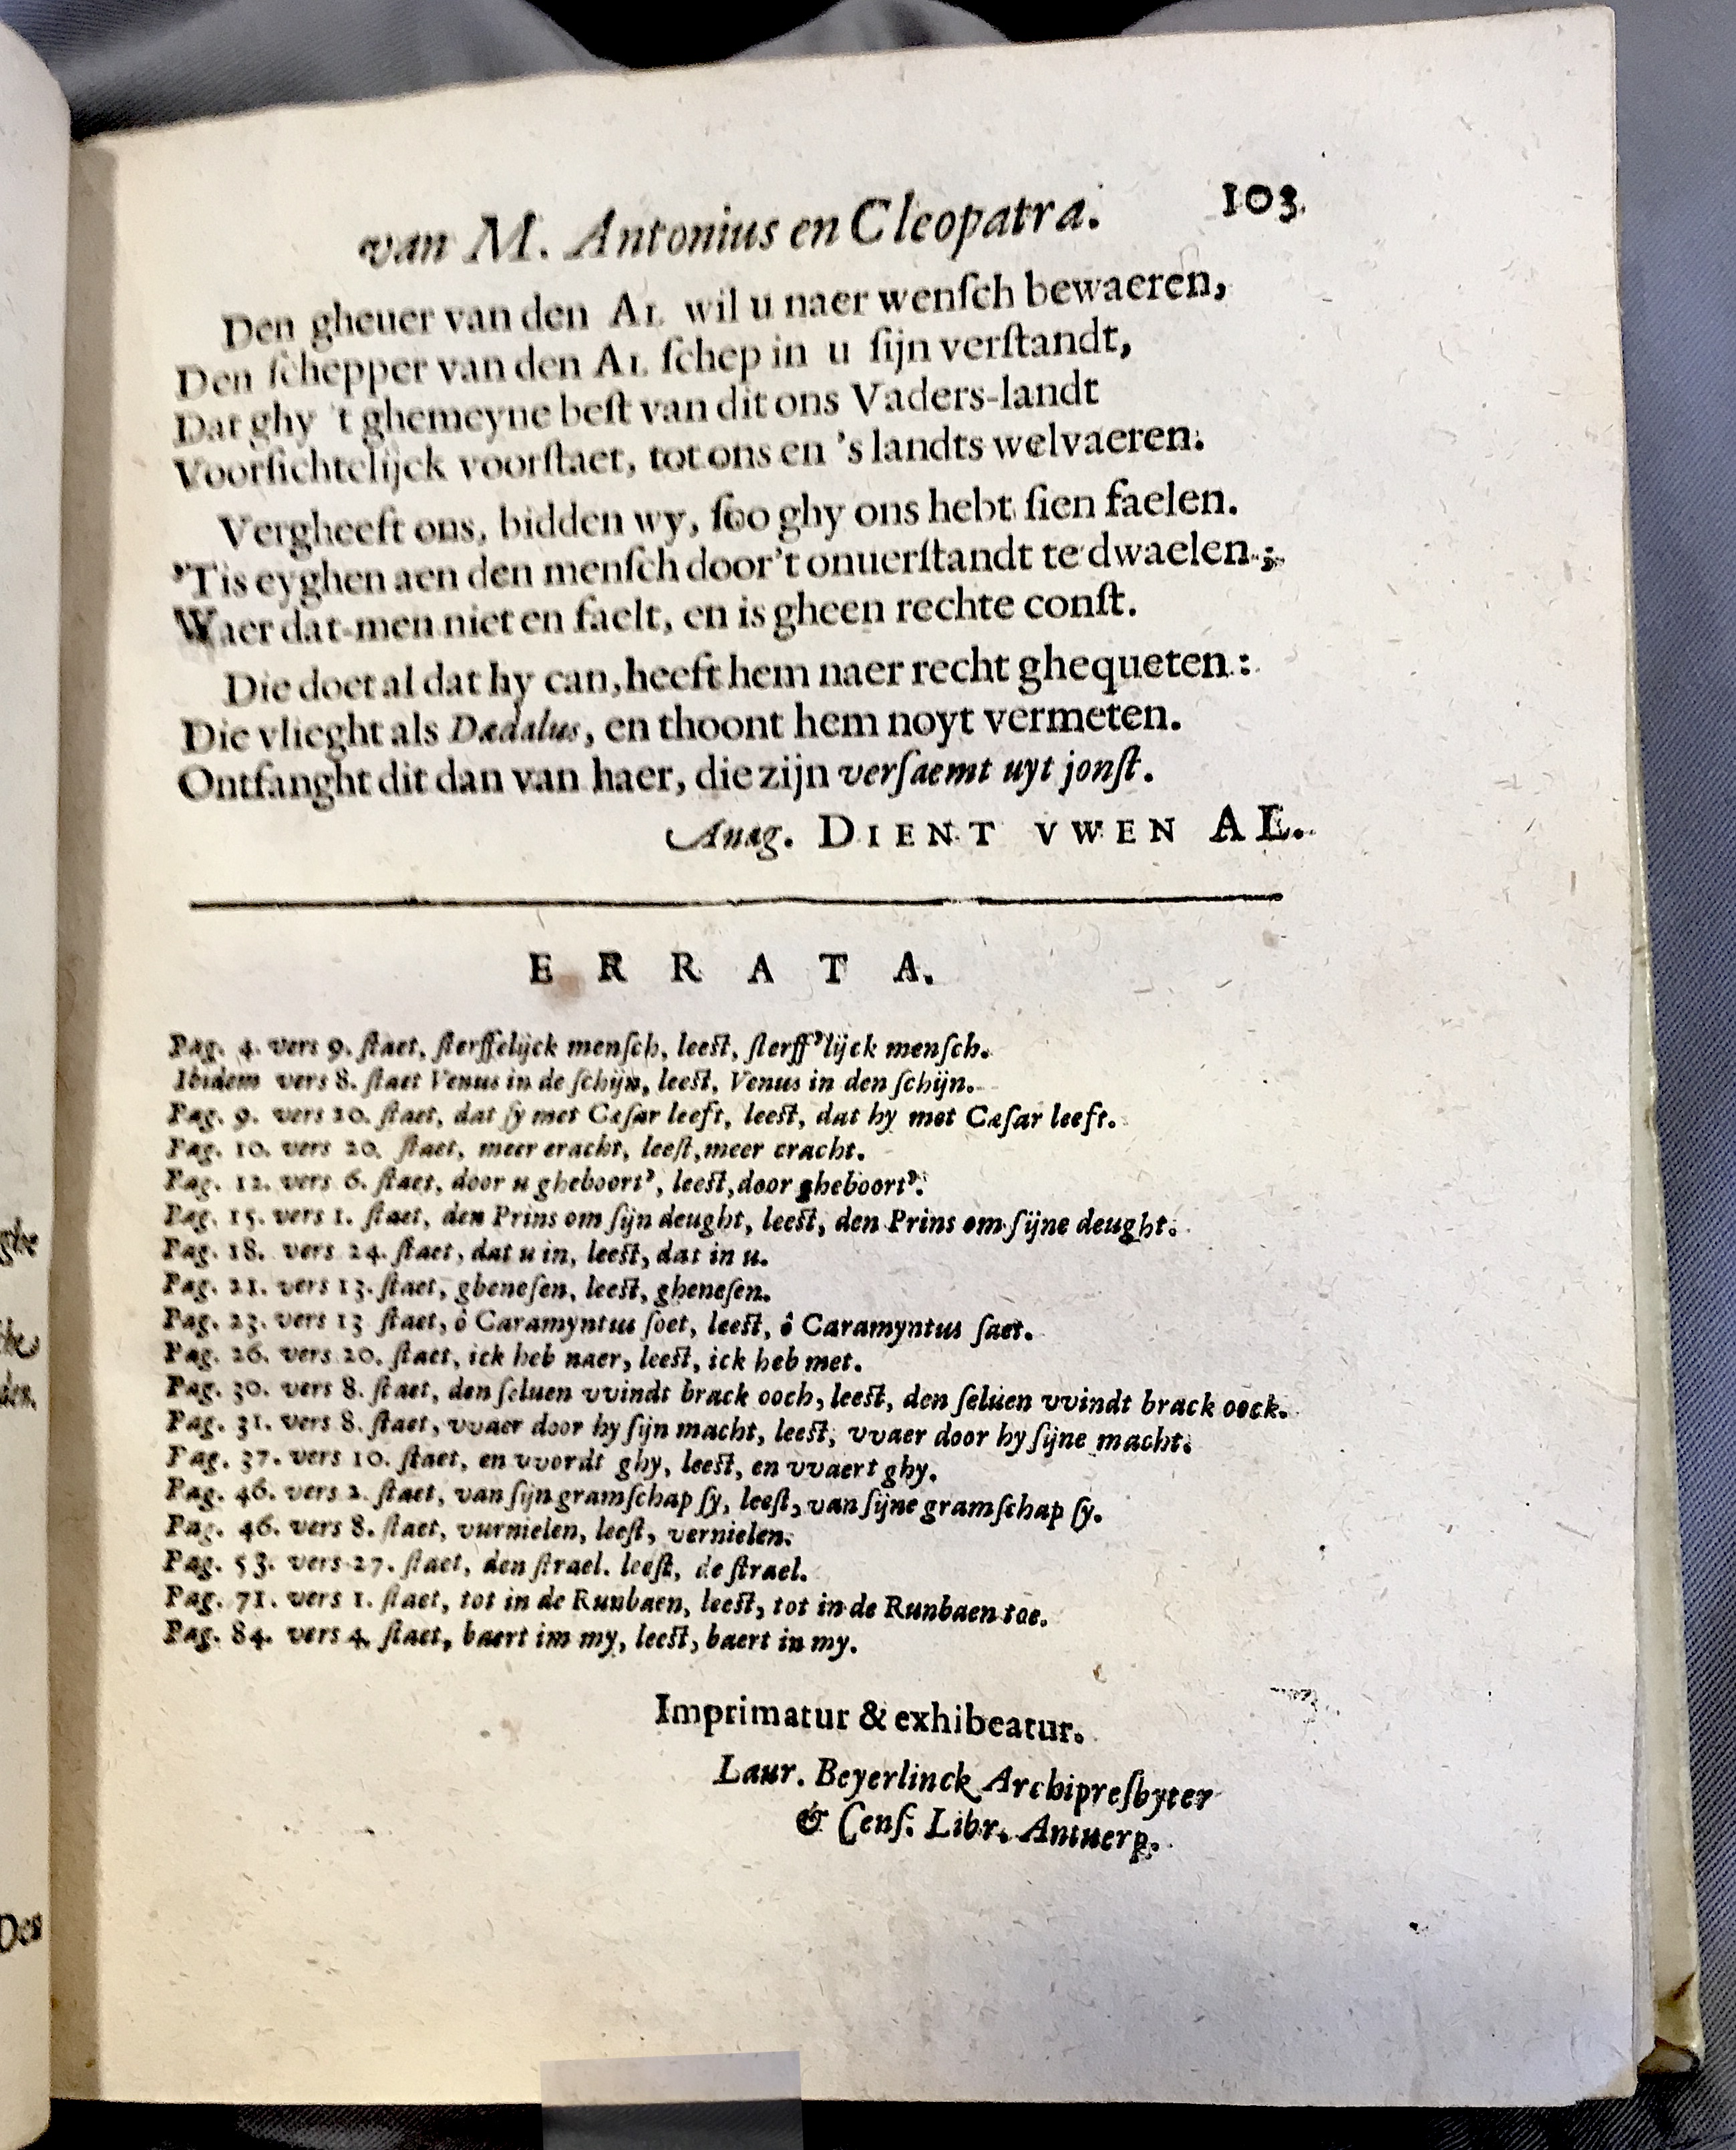 van M. Antonius en Cleopatra. 103.
Den gheuer van den AL wil u naer wenſch bewaeren,
Den ſchepper van den AL ſchep in u ſijn verſtandt,
Dat ghy 't ghemeyne beſt van dit ons Vaders-landt
Voorſichtelijck voorſtaet, tot ons en 's landts welvaeren.
Vergheeft ons, bidden wy, ſoo ghy ons hebt ſien faelen.
'Tis eyghen aen den menſch door't onuerſtandt te dwaelen;
Waer dat-men niet en faelt, en is gheen rechte conſt.
Die doet al dat hy can, heeft hem naer recht ghequeten:
Die vlieght als Dædalus, en thoont hem noyt vermeten.
Ontfanght dit dan van haer, die zijn verſaemt uyt jonſt.
Anag. DIENT VWEN AL.
ERRATA.
Pag. 4. vers 9. ſtaet, ſterffelijck menſch, leeſt, ſterff'lijck menſch.
Ibidem vers 8. ſtaet Venus in de ſchijn, leeſt, Venus in den ſchijn.
Pag. 9. vers 20. ſtaet, dat ſy met Cæſar leeft, leeſt, dat hy met Cæſar leeft.
Pag. 10. vers 20. ſtaet, meer eracht, leeſt, meer cracht.
Pag. 12. vers 6. ſtaet, door u gheboort', leeſt, door gheboort'.
Pag. 15. vers 1. ſtaet, den Prins om ſijn deught, leeſt, den Prins om ſijne deught.
Pag. 18. vers 24. ſtaet, dat u in, leeſt, dat in u.
Pag. 21. vers 13. ſtaet, gbeneſen, leeſt, gheneſen.
Pag. 23. vers 13 ſtaet, ô Caramyntus ſoet, leeſt, ô Caramyntus ſaet.
Pag. 26. vers 20. ſtaet, ick heb naer, leeſt, ick heb met.
Pag. 30. vers 8. ſtaet, den ſeluen vvindt brack ooch, leeſt, den ſeluen vvindt brack oock.
Pag. 31. vers 8. ſtaet, vvaer door hy ſijn macht, leeſt, vvaer door hy ſijne macht.
Pag. 37. vers 10. ſtaet, en vvordt ghy, leeſt, en vvaert ghy.
Pag. 46. vers 2. ſtaet, van ſijn gramſchap ſy, leeſt, van ſijne gramſchap ſy.
Pag. 46. vers 8. ſtaet, vurnielen, leeſt, vernielen.
Pag. 53. vers 27. ſtaet, den ſtrael. leeſt, de ſtrael.
Pag. 71. vers 1. ſtaet, tot in de Runbaen, leeſt, tot in de Runbaen toe.
Pag. 84. vers 4. ſtaet, baert im my, leeſt, baert in my.
Imprimatur & exhibeatur.
Laur. Beyerlinck Archipreſbyter
& Cenſ. Libr. Antuerp.